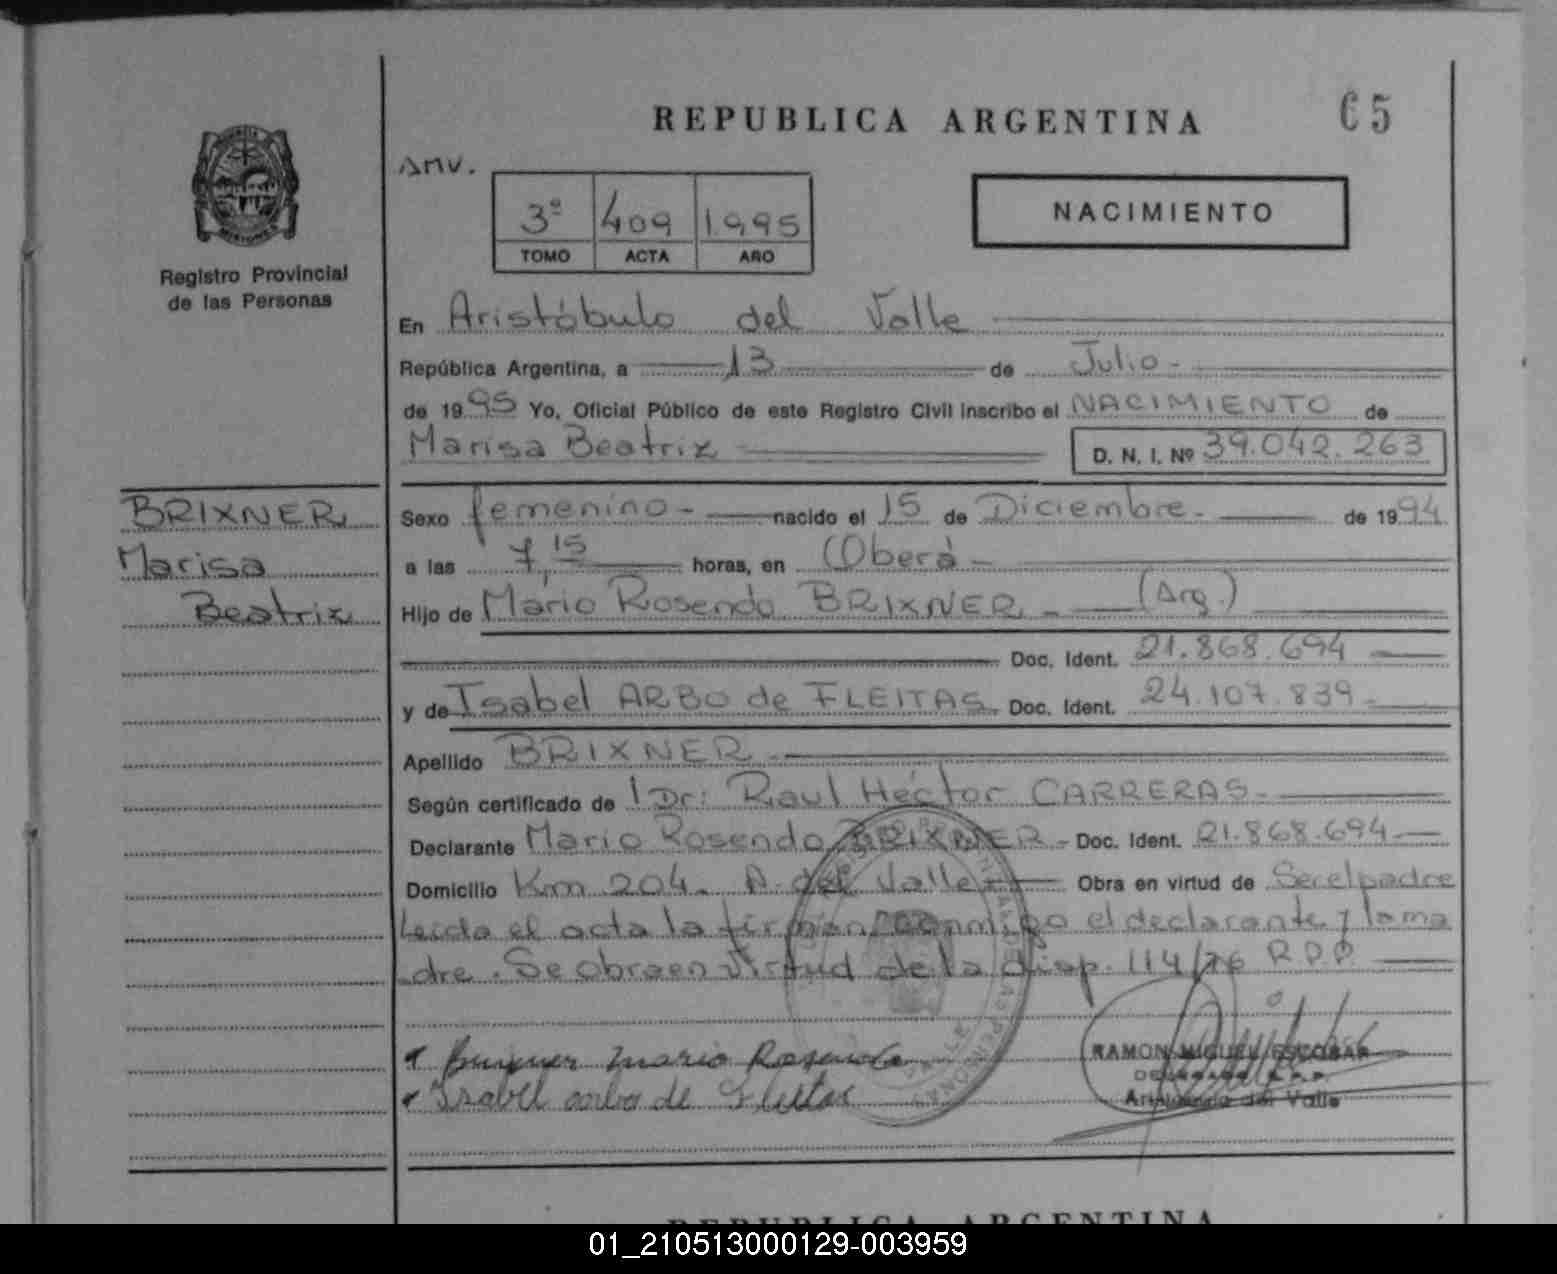 REPUBLICA ARGENTINA
65
AMV.
3º 409 1.995
TOMO ACTA AÑO
NACIMIENTO
MISIONES
Registro Provincial
de las Personas
En Aristóbulo del Valle
República Argentina, a 13 de Julio -
de 19 95 Yo, Oficial Público de este Registro Civil inscribo el NACIMIENTO de
Marisa Beatriz D. N. I. Nº 39.042.263
BRIXNER
Marisa
Beatriz
Sexo femenino - nacido el 15 de Diciembre. de 19 94
a las 7,15 horas, en Oberá -
Hijo de Mario Rosendo BRIXNER - (Arg.)
Doc. Ident. 21.868.694
y de Isabel ARBO de FLEITAS. Doc. Ident. 24.107.839 -
Apellido BRIXNER -
Según certificado de Dr: Raul Héctor CARRERAS -
Declarante Mario Rosendo BRIXNER - Doc. Ident. 21.868.694 -
Domicilio Km 204. A. del Valle Obra en virtud de Ser el padre
Leida el acta la firman conmigo el declarante y la ma
dre. Se obra en virtud de la disp. 114/76 R.P.P
Brixner Mario Rosendo
Isabel arbo de Fleitas
RAMON MIGUEL ESCOBAR
DELEGADO R.P.P.
Aristóbulo del Valle
REPUBLICA ARGENTINA
01_210513000129-003959